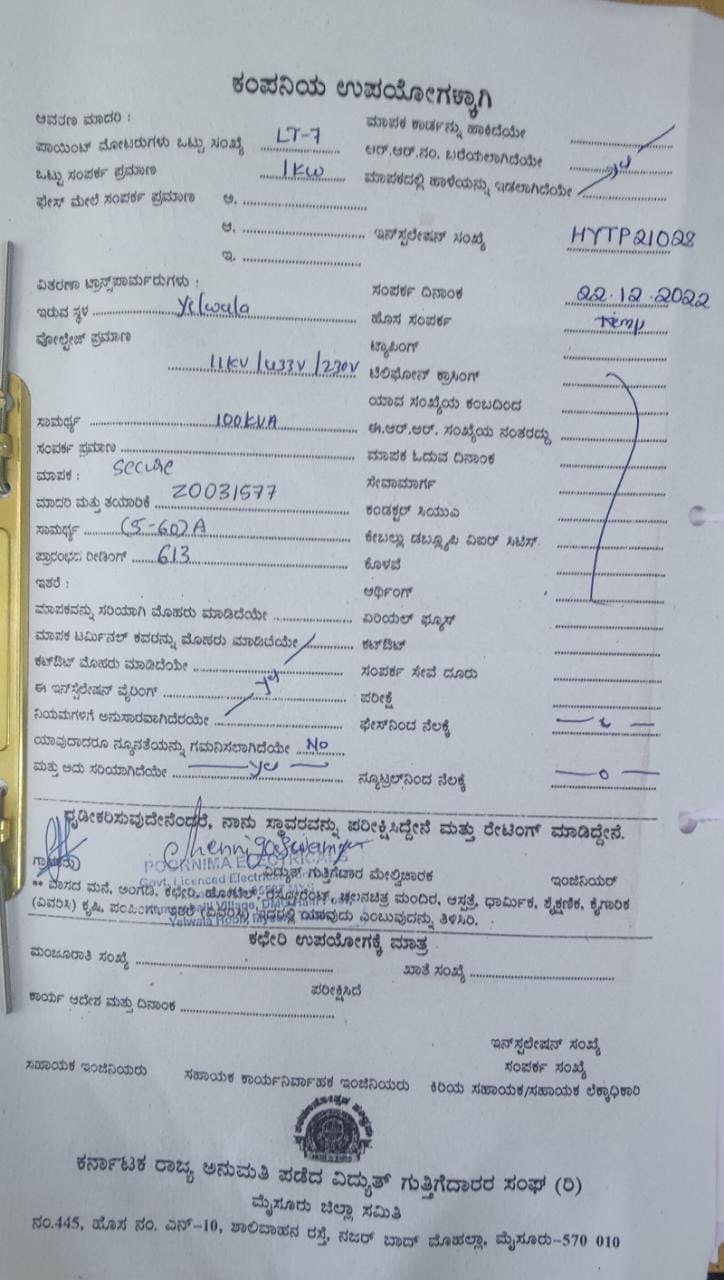 ಕಂಪನಿಯ ಉಪಯೋಗಳ್ಕಾಗಿ
ಆವರಣ ಮಾದರಿ :
ಮಾಪಕ ಕಾರ್ಡನ್ನು ಹಾಕಿದೆಯೇ
ಪಾಯಿಂಟ್ ಮೋಟರುಗಳು ಒಟ್ಟು ಸಂಖ್ಯೆ LT-7
ಆರ್.ಆರ್.ನಂ. ಬರೆಯಲಾಗಿದೆಯೇ
ಒಟ್ಟು ಸಂಪರ್ಕ ಪ್ರಮಾಣ 1KW
ಮಾಪಕದಲ್ಲಿ ಹಾಳೆಯನ್ನು ಇಡಲಾಗಿದೆಯೇ yes
ಫೇಸ್ ಮೇಲೆ ಸಂಪರ್ಕ ಪ್ರಮಾಣ ಅ.
ಆ.
ಇನ್‌ಸ್ಟಲೇಷನ್ ಸಂಖ್ಯೆ HYTP21028
ಇ.
ವಿತರಣಾ ಟ್ರಾನ್ಸ್‌ಪಾರ್ಮರುಗಳು :
ಸಂಪರ್ಕ ದಿನಾಂಕ 22.12.2022
ಇರುವ ಸ್ಥಳ Yelwala
ಹೊಸ ಸಂಪರ್ಕ Temp
ವೋಲ್ಟೇಜ್ ಪ್ರಮಾಣ
11KV/433V/230V
ಟ್ಯಾಪಿಂಗ್
ಟೆಲಿಫೋನ್ ಕ್ರಾಸಿಂಗ್
ಯಾವ ಸಂಖ್ಯೆಯ ಕಂಬದಿಂದ
ಸಾಮರ್ಥ್ಯ 100KVA
ಈ.ಆರ್.ಆರ್. ಸಂಖ್ಯೆಯ ನಂತರದ್ದು
ಸಂಪರ್ಕ ಪ್ರಮಾಣ
ಮಾಪಕ ಓದುವ ದಿನಾಂಕ
ಮಾಪಕ : Secure
ಸೇವಾಮಾರ್ಗ
ಮಾದರಿ ಮತ್ತು ತಯಾರಿಕೆ 20031577
ಕಂಡಕ್ಟರ್ ಸಿಯುಎ
ಸಾಮರ್ಥ್ಯ (5-60)A
ಕೇಬಲ್ಲು ಡಬ್ಲ್ಯೂಪಿ ವಿಐರ್ ಸಿಟಿಸ್
ಪ್ರಾರಂಭದ ರೀಡಿಂಗ್ 613
ಕೊಳವೆ
ಇತರೆ :
ಅರ್ಥಿಂಗ್
ಮಾಪಕವನ್ನು ಸರಿಯಾಗಿ ಮೊಹರು ಮಾಡಿದೆಯೇ
ಏರಿಯಲ್ ಫ್ಯೂಸ್
ಮಾಪಕ ಟರ್ಮಿನಲ್ ಕವರನ್ನು ಮೊಹರು ಮಾಡಿದೆಯೇ
ಕಟ್‌ಔಟ್
ಕಟ್‌ಔಟ್ ಮೊಹರು ಮಾಡಿದೆಯೇ
ಸಂಪರ್ಕ ಸೇವೆ ದೂರು
ಈ ಇನ್‌ಸ್ಟಲೇಷನ್ ವೈರಿಂಗ್ yes
ಪರೀಕ್ಷೆ
ನಿಯಮಗಳಿಗೆ ಅನುಸಾರವಾಗಿದೆರಯೇ
ಫೇಸ್‌ನಿಂದ ನೆಲಕ್ಕೆ
ಯಾವುದಾದರೂ ನ್ಯೂನತೆಯನ್ನು ಗಮನಿಸಲಾಗಿದೆಯೇ No
ಮತ್ತು ಅದು ಸರಿಯಾಗಿದೆಯೇ yes
ನ್ಯೂಟ್ರಲ್‌ನಿಂದ ನೆಲಕ್ಕೆ — 0 —
ದೃಡೀಕರಿಸುವುದೇನೆಂದರೆ, ನಾನು ಸ್ಥಾವರವನ್ನು ಪರೀಕ್ಷಿಸಿದ್ದೇನೆ ಮತ್ತು ರೇಟಿಂಗ್ ಮಾಡಿದ್ದೇನೆ.
POORNIMA ELECTRICALS
ಗ್ರಾಹಕರು ವಿದ್ಯುತ್ ಗುತ್ತಿಗೆದಾರ ಮೇಲ್ವಿಚಾರಕ ಇಂಜಿನಿಯರ್
Govt. Licenced Electrical
** ವಾಸದ ಮನೆ, ಅಂಗಡಿ, ಕಛೇರಿ, ಹೋಟೆಲ್, ರೆಸ್ಟೋರೆಂಟ್, ಚಲನಚಿತ್ರ ಮಂದಿರ, ಆಸ್ಪತ್ರೆ, ಧಾರ್ಮಿಕ, ಶೈಕ್ಷಣಿಕ, ಕೈಗಾರಿಕ
(ವಿವರಿಸಿ) ಕೃಷಿ, ಪಂಪಿಂಗ್, ಇತರೆ (ವಿವರಿಸಿ) ಇದರಲ್ಲಿ ಯಾವುದು ಎಂಬುವುದನ್ನು ತಿಳಿಸಿರಿ.
Yelwala Hobli,
ಕಛೇರಿ ಉಪಯೋಗಕ್ಕೆ ಮಾತ್ರ
ಮಂಜೂರಾತಿ ಸಂಖ್ಯೆ
ಖಾತೆ ಸಂಖ್ಯೆ
ಪರೀಕ್ಷಿಸಿದೆ
ಕಾರ್ಯ ಆದೇಶ ಮತ್ತು ದಿನಾಂಕ
ಇನ್‌ಸ್ಟಲೇಷನ್ ಸಂಖ್ಯೆ
ಸಂಪರ್ಕ ಸಂಖ್ಯೆ
ಸಹಾಯಕ ಇಂಜಿನಿಯರು ಸಹಾಯಕ ಕಾರ್ಯನಿರ್ವಾಹಕ ಇಂಜಿನಿಯರು ಕಿರಿಯ ಸಹಾಯಕ/ಸಹಾಯಕ ಲೆಕ್ಕಾಧಿಕಾರಿ
ಕರ್ನಾಟಕ ರಾಜ್ಯ ಅನುಮತಿ ಪಡೆದ ವಿದ್ಯುತ್ ಗುತ್ತಿಗೆದಾರರ ಸಂಘ (ರಿ)
ಮೈಸೂರು ಜಿಲ್ಲಾ ಸಮಿತಿ
ನಂ.445, ಹೊಸ ನಂ. ಎನ್-10, ಶಾಲಿವಾಹನ ರಸ್ತೆ, ನಜರ್ ಬಾದ್ ಮೊಹಲ್ಲಾ, ಮೈಸೂರು-570 010